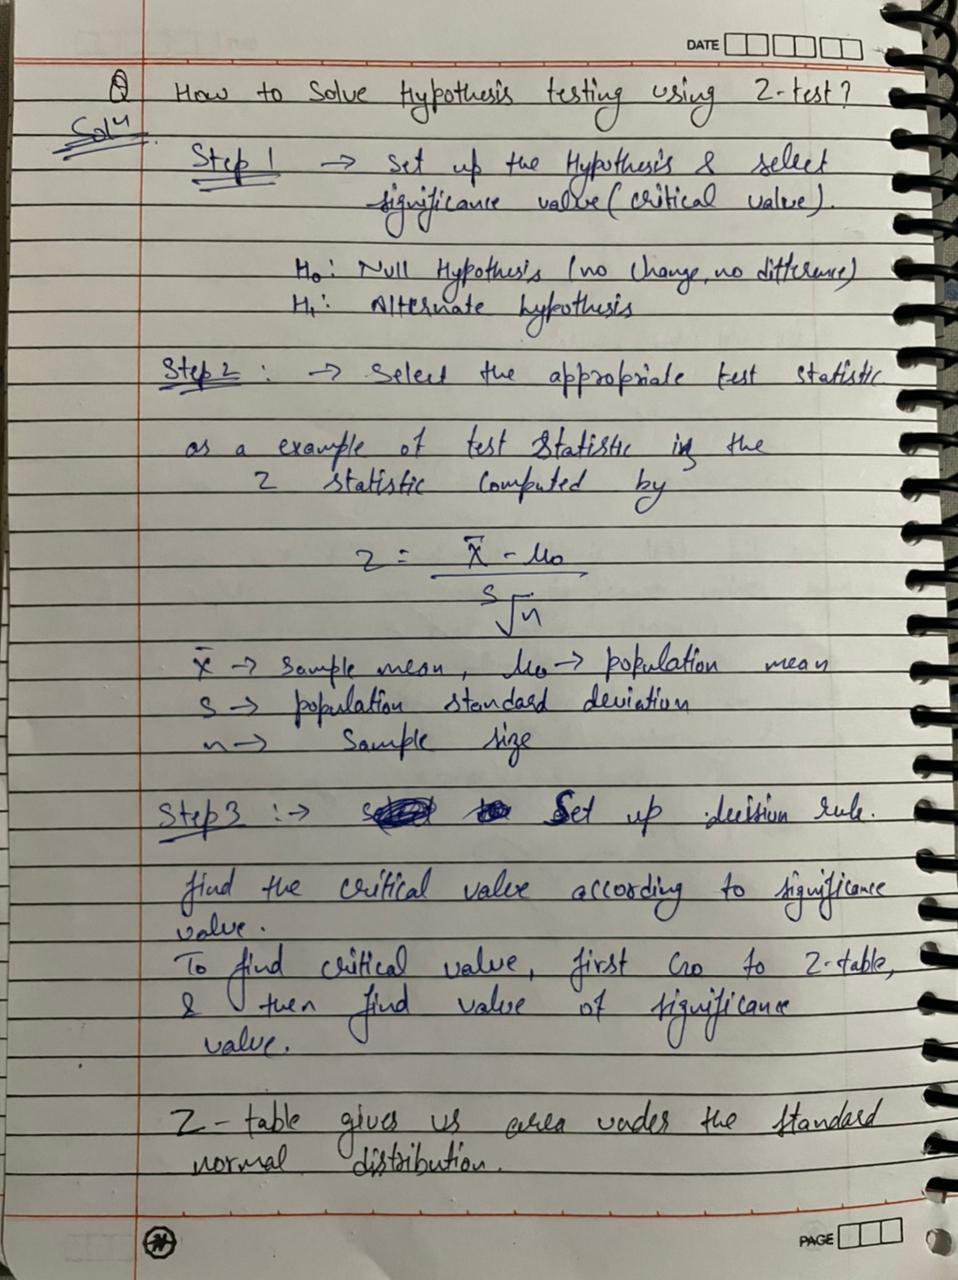 DATE
Q How to Solve Hypothesis testing using Z-test?
Solⁿ
Step 1 → Set up the Hypothesis & select
significance value (critical value).
H₀: Null Hypothesis (no change, no difference)
H₁: Alternate hypothesis
Step 2 : → Select the appropriate test statistic
as a example of test statistic is the
Z statistic computed by
Z = x̄ - μ₀
s√n
x̄ → Sample mean, μ₀ → population mean
s → population standard deviation
n → Sample size
Step 3 :→ Set up decision rule.
find the critical value according to significance
value.
To find critical value, first Go to Z-table,
& then find value of significance
value.
Z-table gives us area under the standard
normal distribution.
PAGE